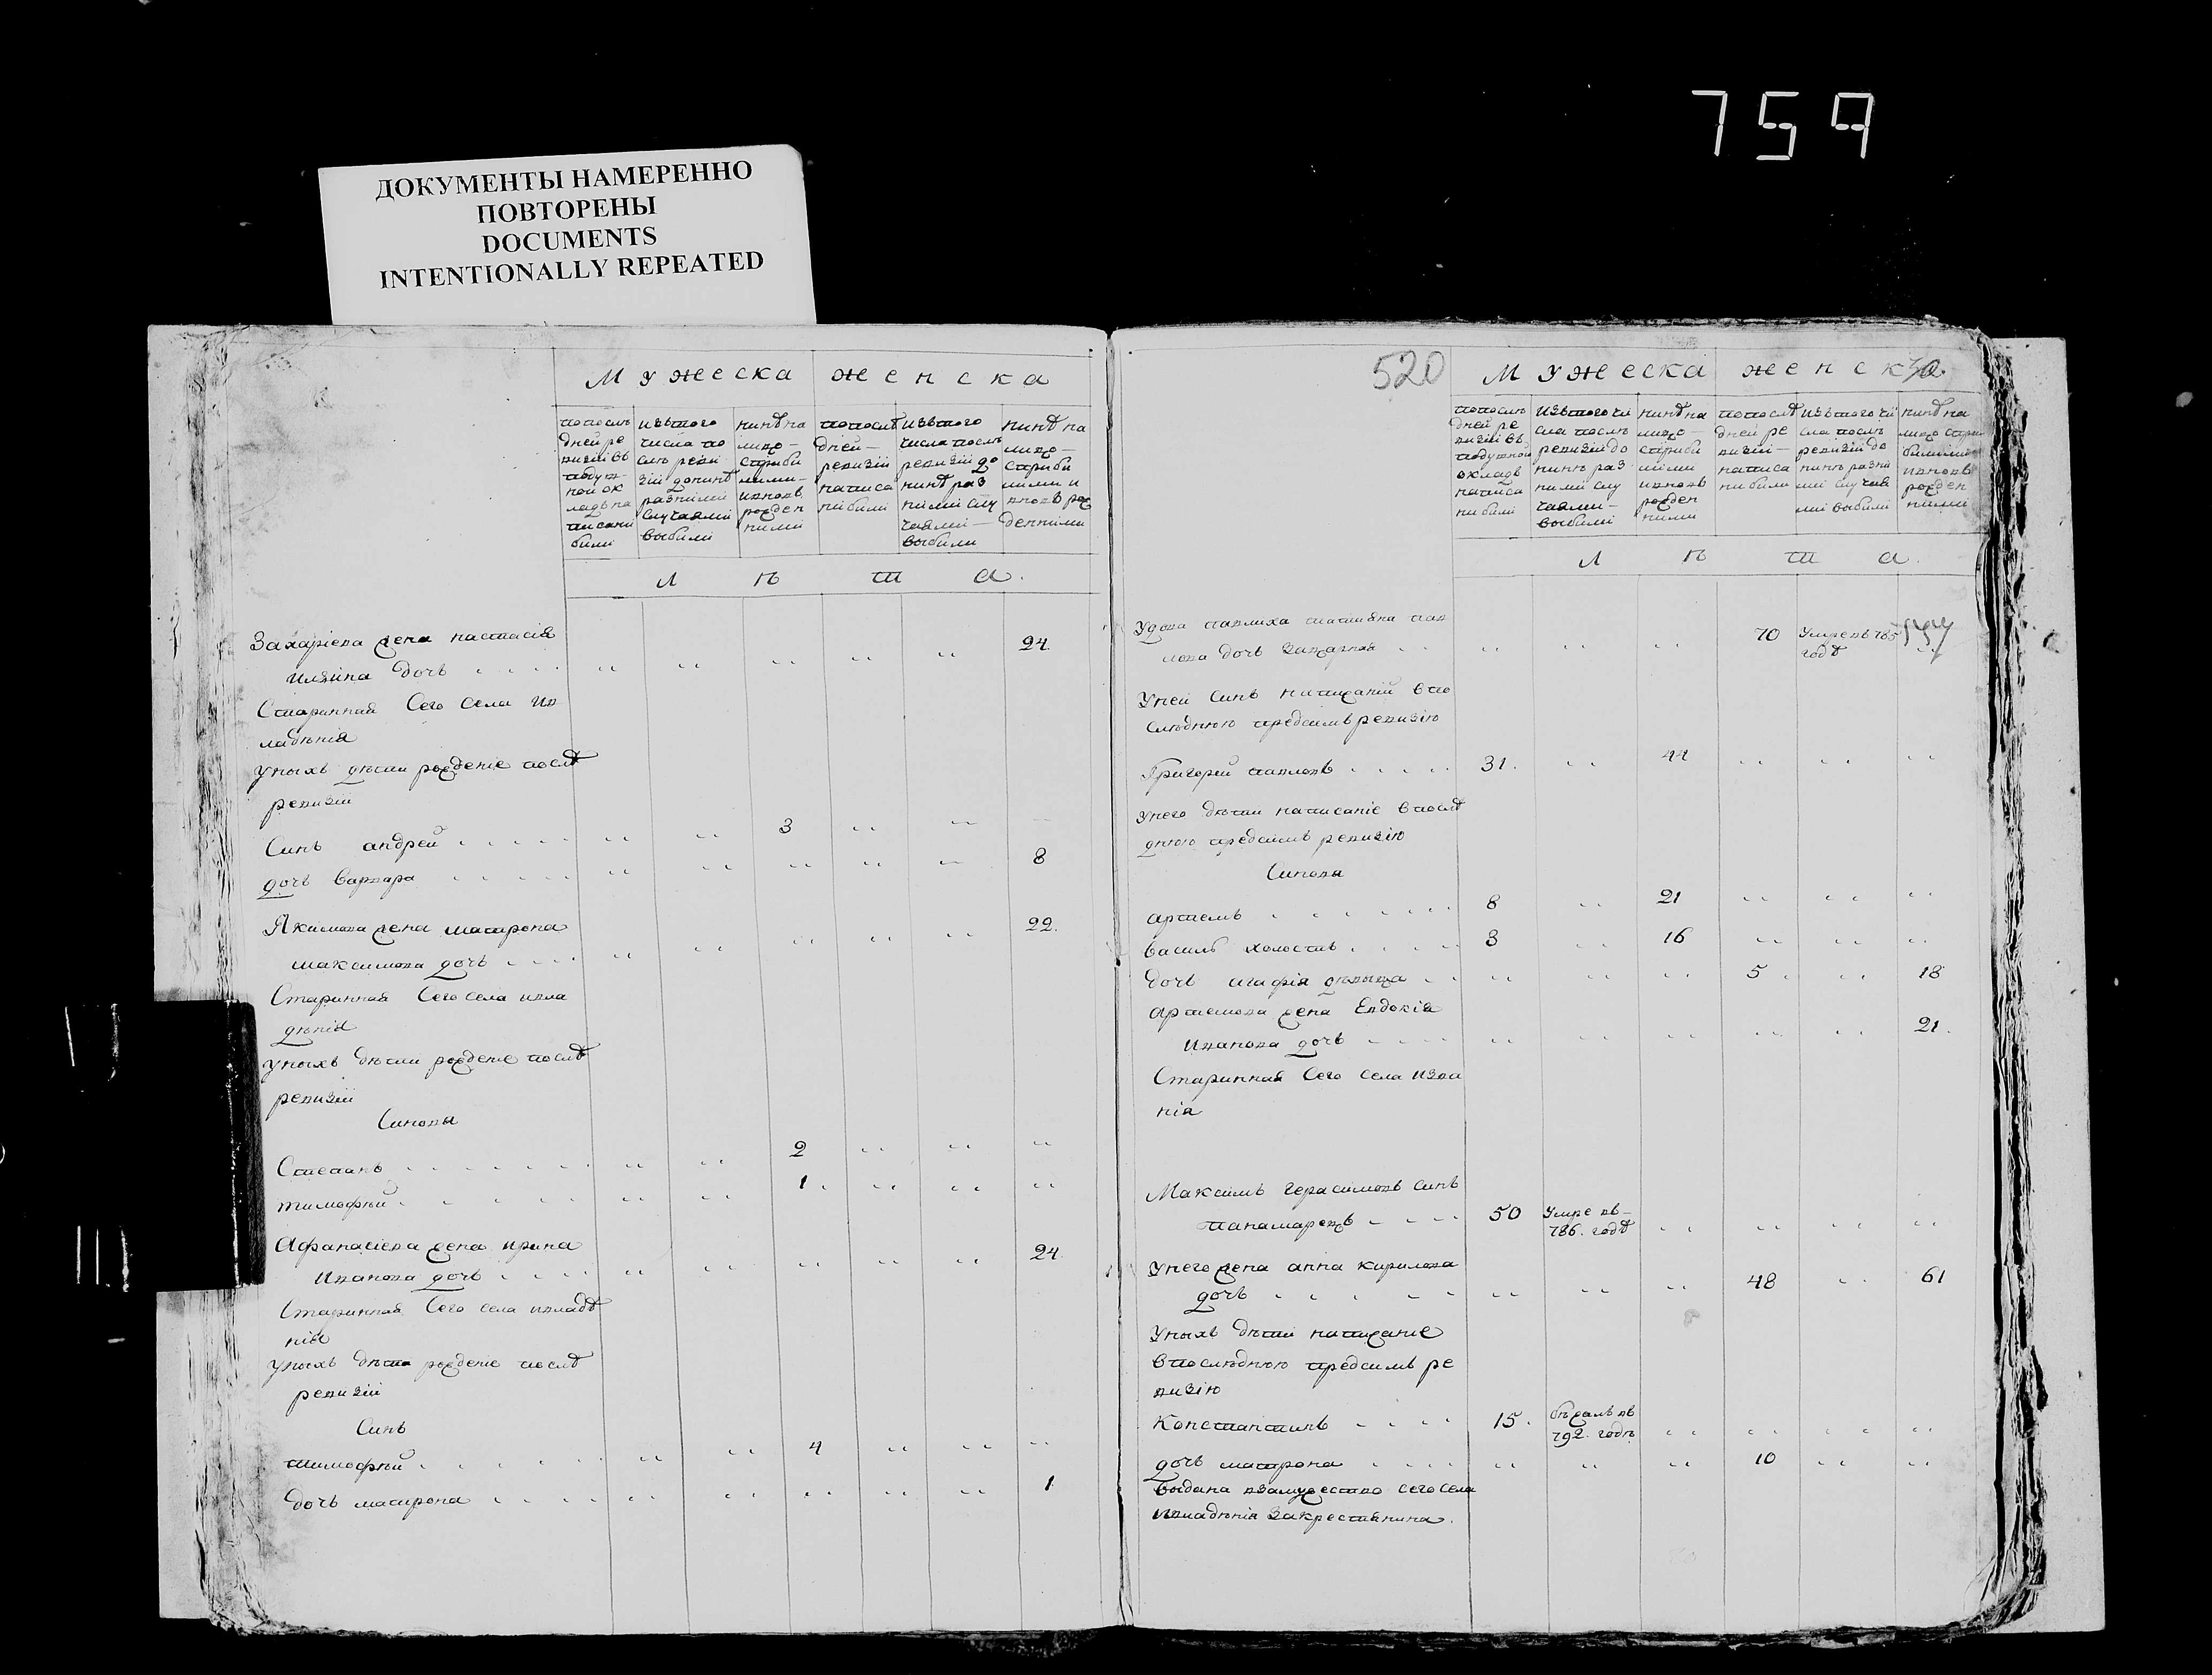 759
ДОКУМЕНТЫ НАМЕРЕННО
ПОВТОРЕНЫ
DOCUMENTS
INTENTIONALLY REPEATED
Мужеска женска
попослѣ
дней ре
визіи въ
подуш-
ной ок
ладъ на
писани
били
изътого
числа по
слѣ реви
зіи донинѣ
разними
случаями
выбили
нинѣ на
лицо-
стриби
лими-
ивновъ
рожден
ними
попослѣ
дней-
ревизіи
написа
ни били
изътого
числа послѣ
ревизіи до
нинѣ раз
ними слу
чаями-
выбили
нинѣ на
лицо-
стриби
лими и
вновъ рож
денними
лѣта.
Захаріева жена настасія 24.
илѣина дочь
Старинная Сего Села ив
ладѣнія
уныхъ дѣти рожденіе послѣ
ревизіи
Синъ андрей 3
дочь варвара 8
Якимова жена матрона 22.
максимова дочь
Старинная Сего села ивла
дѣнія
уныхъ дѣти рожденіе послѣ
ревизіи
Синова
Степанъ 2
тимофѣй 1
Афанасіева жена ирина 24
Иванова дочь
Старинная Сего села ивладѣ
нія
уныхъ дѣти рожденіе послѣ
ревизіи
Синъ
тимофѣй 4
дочь матрона 1
520
Мужеска женска
попослѣ
дней ре
визіи въ
подушной
окладъ
написа
ни били
Изътого чи
сла послѣ
ревизіи до
нинѣ раз
ними слу
чаями-
выбили
нинѣ на
лицо-
стриби
лими
ивновъ
рожден
ними
попослѣ
дней ре
визіи-
написа
ни били
изътого чи
сла послѣ
ревизіи до
нинѣ разни
ми случая
ми выбили
нинѣ на
лицо стри
билими
ивновъ
рожден
ними
лѣта.
Удова павлиха татияна пав 70 Умре въ 785
лова дочь годѣ
Уней Синъ написаній впо
слѣднюю предсимъ ревизію
Григорей павловъ 31. 44
Унего дѣти написаніе впослѣ
днюю предсимъ ревизію
Синова
артемъ 8 21
василь холостъ 3 16
дочь агафія дѣвица 5 18
артемова жена Евдокія 21.
Иванова дочь
Старинная Сего села
нія
Максимъ герасимовъ синъ
панамаренъ 50 Умре въ-
786. годѣ
Унего жена анна кирилова 48 61
дочь
Уныхъ дѣти написаніе
впослѣднюю предсимъ ре
визію
Константинъ 15. бѣжалъ въ
792. годѣ
дочь матрона 10
выдана взамужество сего села
ивладѣнія закрестянина.